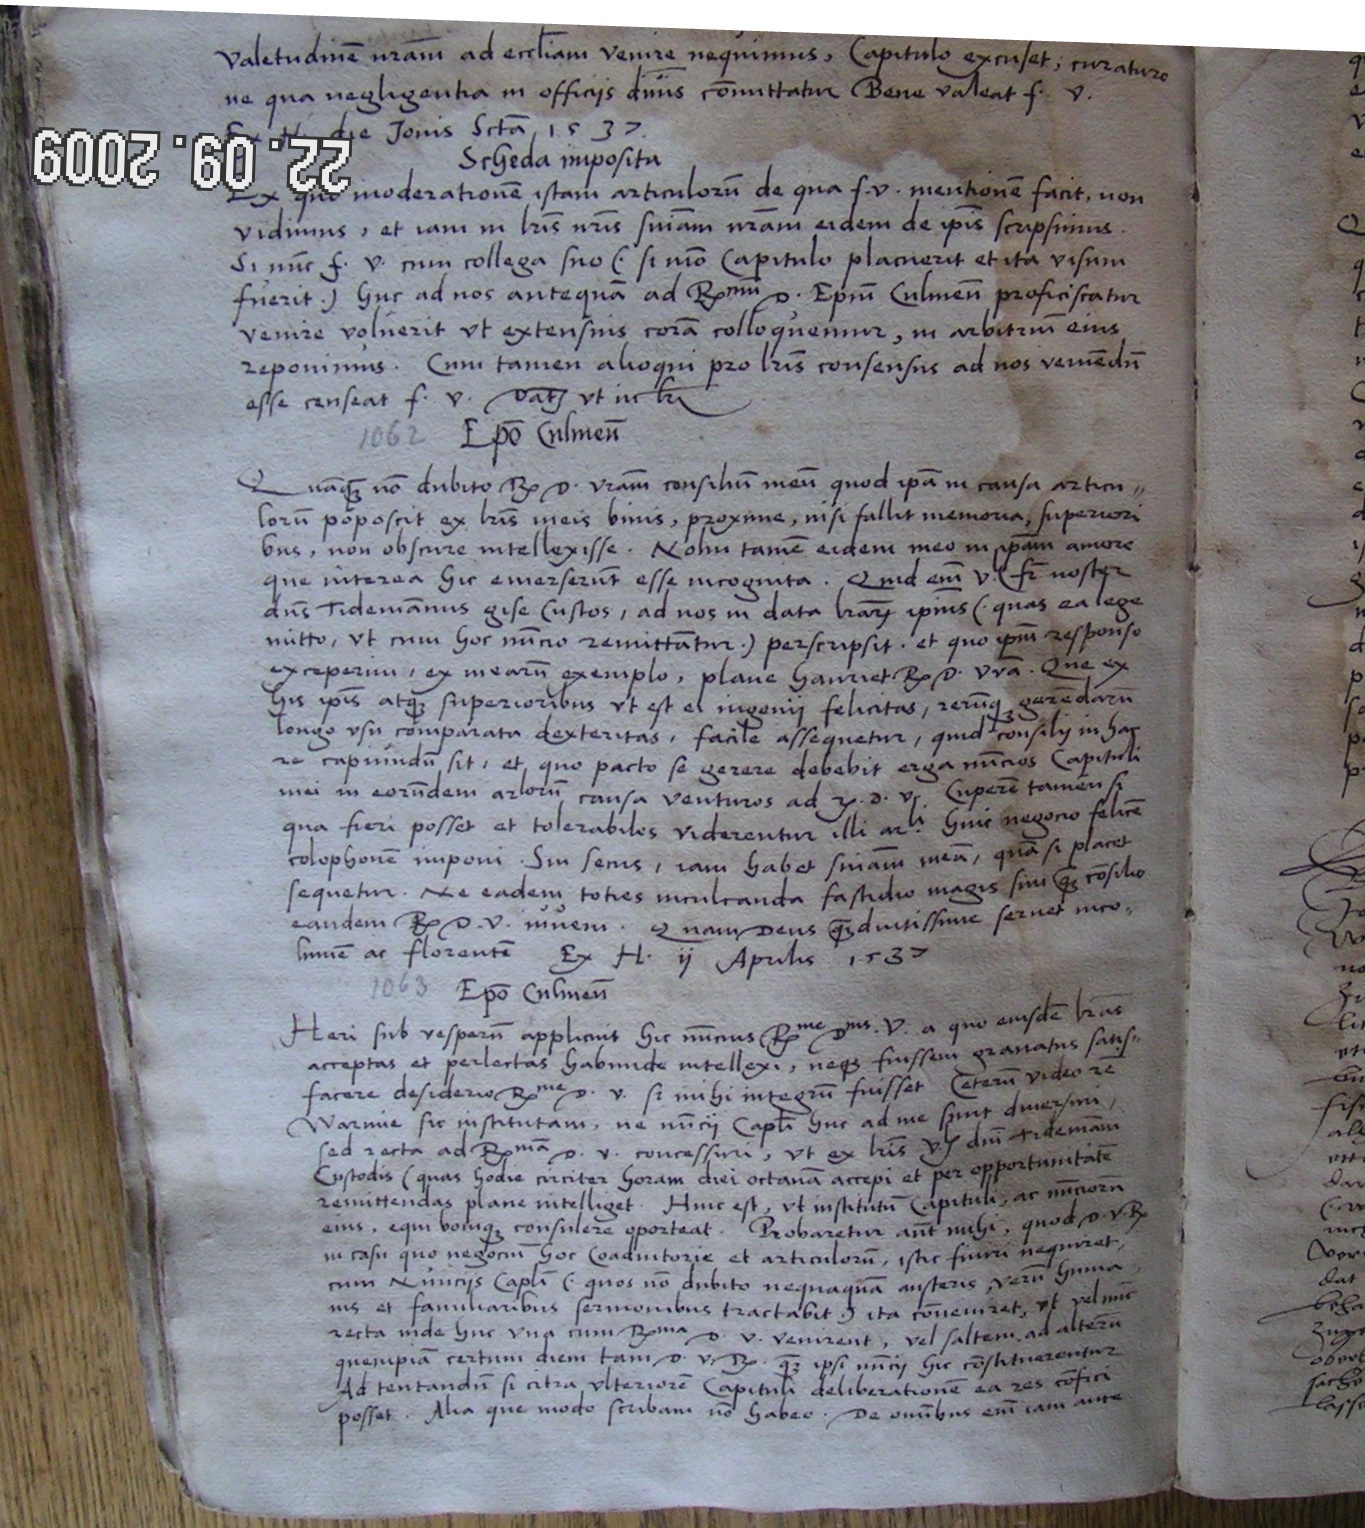 valetudinē nrām ad eccliam venire nequimus, Capitulo excuset, curaturo
ne qua negligentia in officijs diuis cōmittatur Bene valeat f. v.
Ex H. die Jouis Sctā 1537.
22.09.2009
Scheda imposita
Ex quo moderationē istam articulorū de qua f. v. mentionē facit, non
vidimus, et iam in lris nris sniam nram eidem de ipis scripsimus.
Si nūc f. v. cum collega suo (: si nio Capitulo placuerit et ita visum
fuerit :) huc ad nos antequā ad Rmum D. Epm Culmen proficiscatur
venire voluerit vt extensius corā colloquemur, in arbitriū eius
reponimus. Cum tamen alioqui pro lris consensus ad nos veniēdū
esse censeat f. v. Datę vt in lris
1062 Epō Culmeñ
Quāq̨ nō dubito R. D. vram consiliū meū quod ipā in causa articu„
lorū poposcit ex lris meis binis, proxime, nisi fallit memoria, superiori
bus, non obscure intellexisse. Nolui tamē eidem meo in ipām amore
que interea hic emerserūt esse incognita. Quid em v. fr noster
dns Tidemānus gise Custos, ad nos in data lrarū ipius (: quas ea lege
mitto, vt cum hoc nūcio remittātur :) perscripsit. et quo ipm responso
exceperim, ex mearū exemplo, plane hauriet R. D. vra. Que ex
his ipis atq̨ superioribus vt est ei ingenij felicitas, rerūq̨ gerēdarū
longo vsu comparata dexteritas, facile assequetur, quid consilij in hac
re capiundū sit, et quo pacto se gerere debebit erga nūcios Capituli
mei in eorūdem arlorū causa venturos ad R. D. v. Cuperē tamen si
qua fieri posset et tolerabiles viderentur illi arli huic negocio felicē
colophonē imponi. Sin secus, iam habet sniam meā, quā si placet
sequetur. Ne eadem toties inculcanda fastidio magis sim q̨ cōsilio
eandem R. D. V. iuuem. Quam Deus q̨ diutissime seruet inco-
lumē ac florentē Ex H. ij Aprilis 1537
1063 Epō Culmeñ
Heri sub vesperū applicuit hic nūcius Rme Dnis. V. a quo eiusdē lras
acceptas et perlectas habunde intellexi, neq̨ fuissem grauatus satis-
facere desiderio Rme D. v. si mihi integrū fuisset Ceterū video rē
Warmie sic institutam, ne nūcij Capli huc ad me sint diuersuri,
sed recta ad Rmā D. v. concessuri, vt ex lris V. dni Tidemāni
Custodis (quas hodie circiter horam diei octauā accepi et per opportunitatē
remittendas plane intelliget. Hinc est, vt institutū Capituli, ac nūciorū
eius, equi boniq̨ consulere oporteat. Probaretur aūt mihi, quod D. v. R.
in casu quo negociū hoc Coadiutorie et articulorū, istic finiri nequiret,
cum Nūncijs Capli (: quos nō dubito nequaquā austeris, verū huma-
nis et familiaribus sermonibus tractabit :) ita cōueniret, vt vel nūc
recta inde huc vna cum Rma D. v. venirent, vel saltem ad alterū
quempiā certum diem tam D. v. R. q̨ ipsi nūcij hic cōstituerentur
Ad tentandū si citra vlteriorē Capituli deliberationē ea res cōfici
posset. Alia que modo scribam nō habeo. De omībus em iam ante